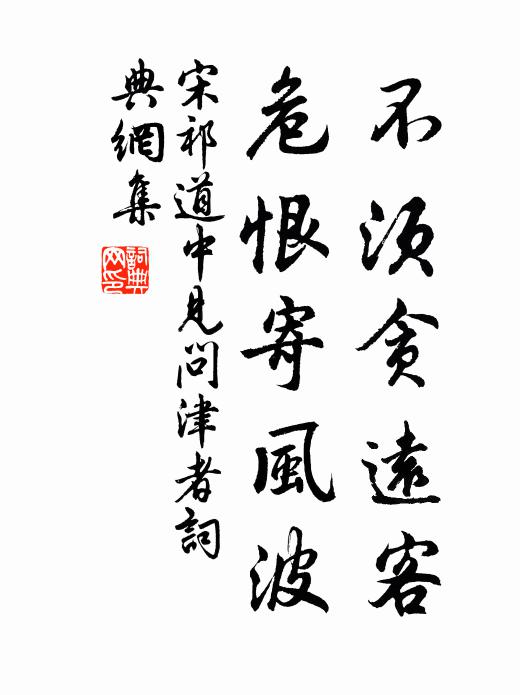 不須貪遠客
危恨寄風波
宋祁道中見問津者詞
典網集
詞典網印